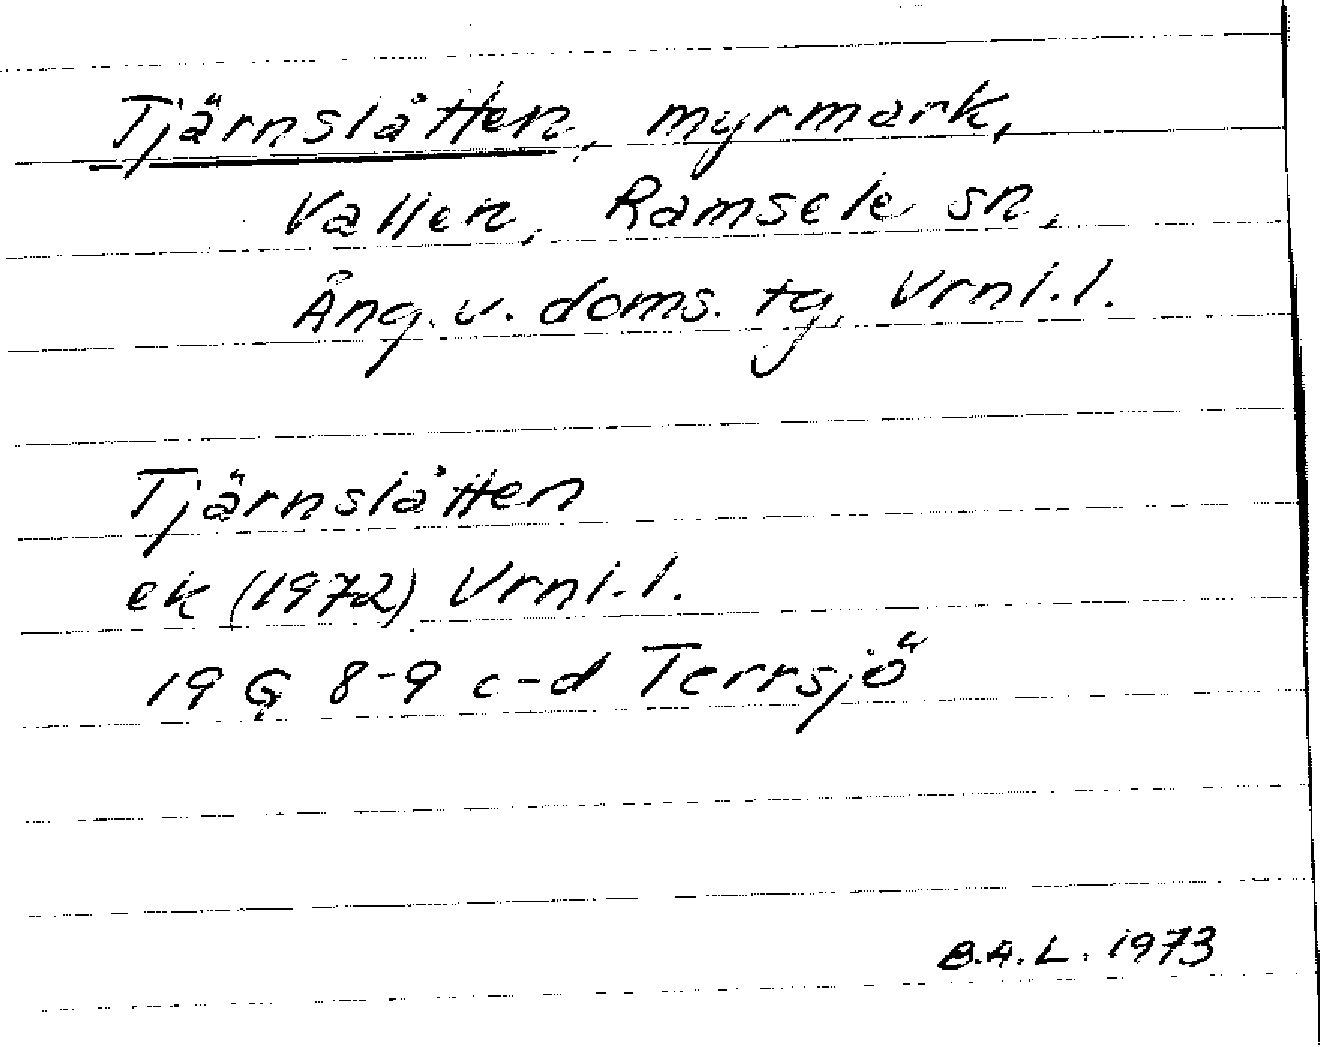 Tjärnslåtten, myrmark,
Vallen, Ramsele sn,
Ång. v. doms. tg, Vrnl.l.
Tjärnslåtten
ek (1972) Vrnl.l.
19 G 8-9 c-d Terrsjö
B.A.L. 1973